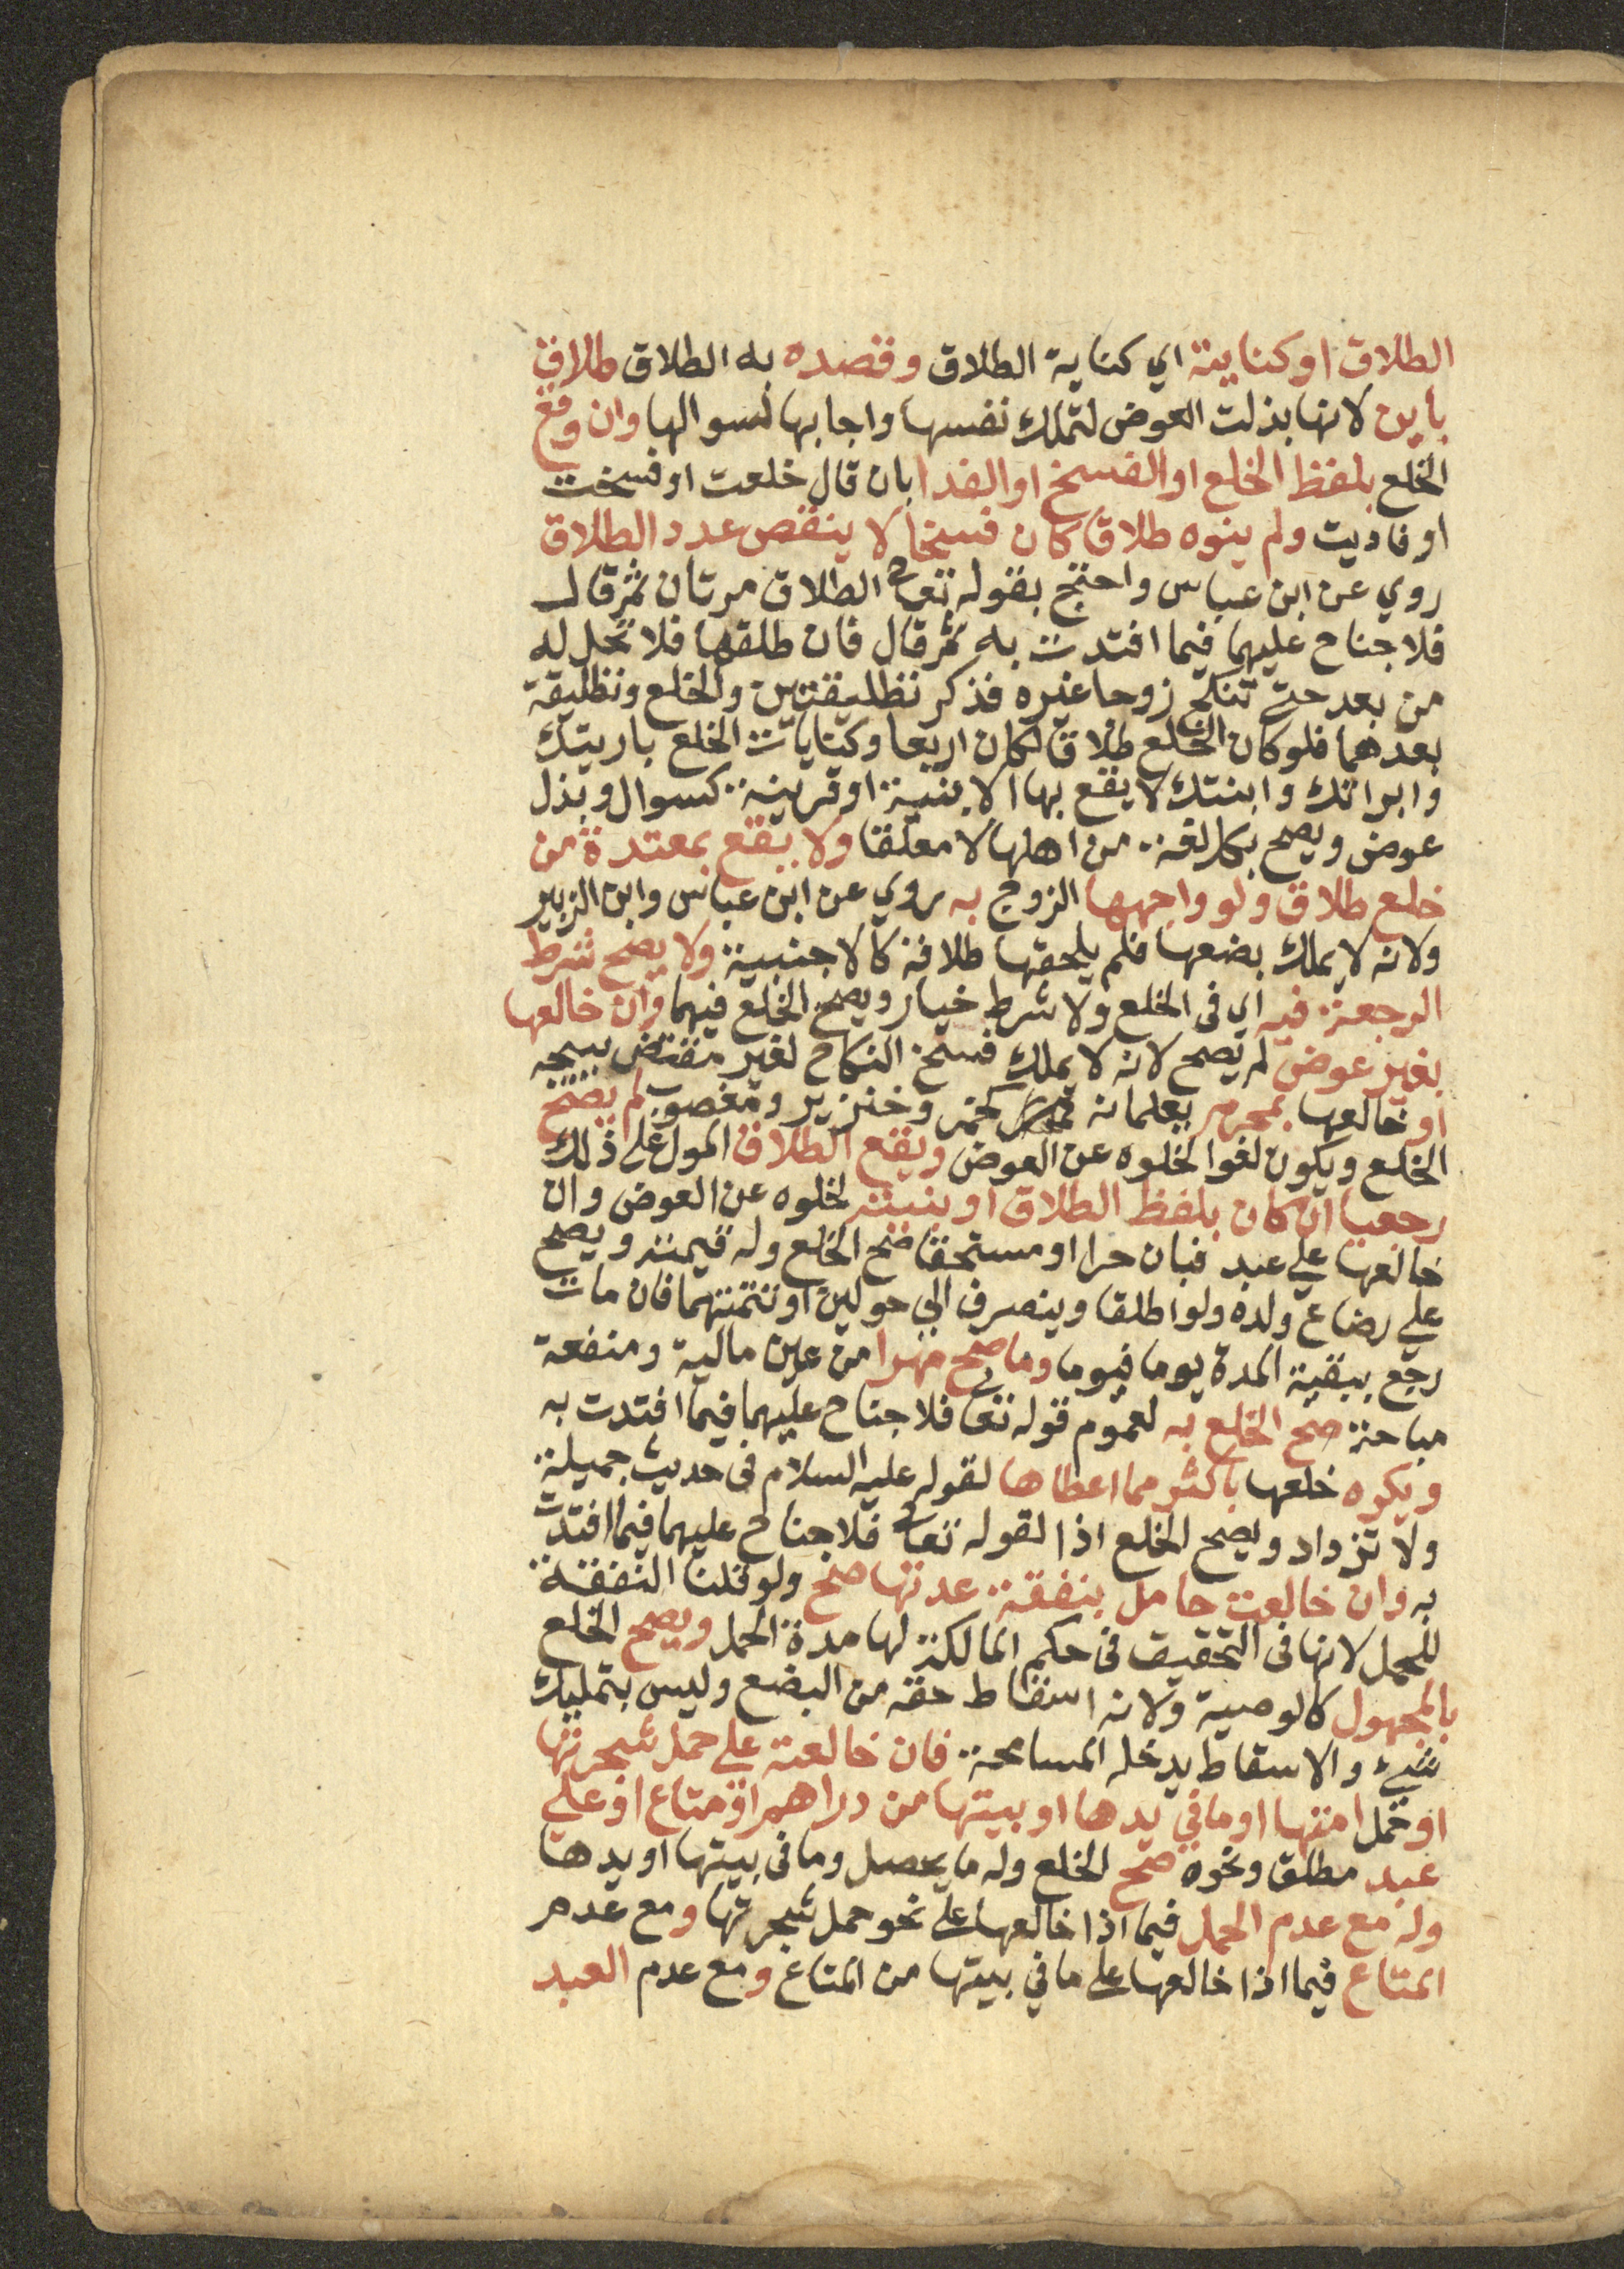 الطلاق او كنايته اي كناية الطلاق وقصده به الطلاق طلاق
باين لانها بذلت العوض لتملك نفسها واجابها لسوالها وان وقع
الخلع بلفظ الخلع او الفسخ او الفدا بان قال خلعت او فسخت
او فاديت ولم ينوه طلاقا كان فسخا لا ينقص عدد الطلاق
روي عن ابن عباس واحتج بقوله تعالى الطلاق مرتان ثم قال
فلا جناح عليهما فيما افتدت به ثم قال فان طلقها فلا تحل له
من بعد حتى تنكح زوجا غيره فذكر تطليقتين والخلع وتطليقة
بعدهما فلو كان الخلع طلاقا لكان اربعا وكنايات الخلع باريتك
وابراتك وابنتك لا يقع بها الا بنية او قرينة كسوال وبذل
عوض ويصح بكل لغة من اهلها لا معلقا ولا يقع بمعتدة من
خلع طلاق ولو واجهها الزوج به روي عن ابن عباس وابن الزبير
ولانه لا يملك بضعها فلم يلحقها طلاقه كالاجنبية ولا يصح شرط
الرجعة فيه اي في الخلع ولا شرط خيار ويصح الخلع فيهما وان خالعها
بغير عوض لم يصح لانه لا يملك فسخ النكاح لغير مقتض يبيحه
او خالعها بمحرم يعلمانه كخمر وخنزير ومغصوب لم يصح
الخلع ويكون لغوا لخلوه عن العوض ويقع الطلاق المول على ذلك
رجعيا ان كان بلفظ الطلاق او بنيته لخلوه عن العوض وان
خالعها على عبد فبان حرا او مستحقا صح الخلع وله قيمته ويصح
على رضاع ولده ولو اطلقا وينصرف الى حولين او تتمتهما فان مات
رجع ببقية المدة يوما فيوما وما صح مهرا من عين مالية ومنفعة
مباحة صح الخلع به لعموم قوله تعالى فلا جناح عليهما فيما افتدت به
ويكره خلعها باكثر مما اعطاها لقوله عليه السلام في حديث جميلة
ولا تزداد ويصح الخلع اذا لقوله تعالى فلا جناح عليهما فيما افتدت
به وان خالعت حامل بنفقة عدتها صح ولو قلنا النفقة
للحمل لانها في التحقيق في حكم المالكة لها مدة الحمل ويصح الخلع
بالمجهول كالوصية ولانه اسقاط حقه من البضع وليس بتمليك
شيء والاسقاط يدخله المسامحة فان خالعته على حمل شجرتها
او حمل امتها او ما في يدها او بيتها من دراهم او متاع او على
عبد مطلق ونحوه صح الخلع وله ما يحصل وما في بيتها او يدها
وله مع عدم الحمل فيما اذا خالعها على نحو حمل شجرتها ومع عدم
المتاع فيما اذا خالعها على ما في بيتها من المتاع ومع عدم العبد